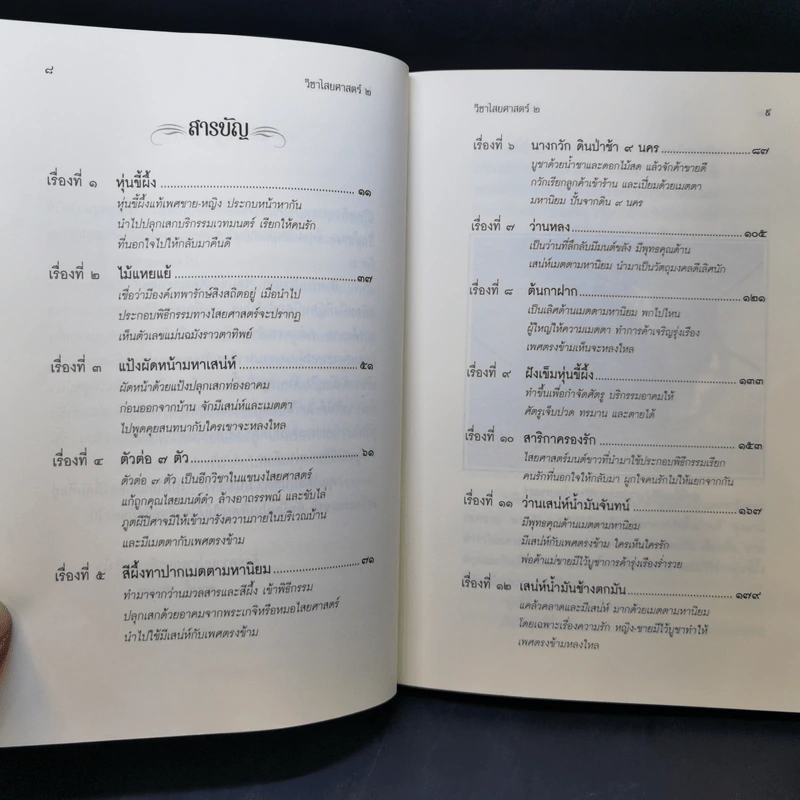 ๘
วิชาไสยศาสตร์ ๒
สารบัญ
เรื่องที่ ๑ หุ่นขี้ผึ้ง ๑๑
หุ่นขี้ผึ้งแท้เพศชาย-หญิง ประกบหน้าหากัน
นำไปปลุกเสกบริกรรมเวทมนตร์ เรียกให้คนรัก
ที่นอกใจไปให้กลับมาคืนดี
เรื่องที่ ๒ ไม้แหยแย้ ๓๗
เชื่อว่ามีองค์เทพารักษ์สิงสถิตอยู่ เมื่อนำไป
ประกอบพิธีกรรมทางไสยศาสตร์จะปรากฏ
เห็นตัวเลขแม่นฉมังราวตาทิพย์
เรื่องที่ ๓ แป้งผัดหน้ามหาเสน่ห์ ๕๑
ผัดหน้าด้วยแป้งปลุกเสกท่องอาคม
ก่อนออกจากบ้าน จักมีเสน่ห์และเมตตา
ไปพูดคุยสนทนากับใครเขาจะหลงใหล
เรื่องที่ ๔ ตัวต่อ ๗ ตัว ๖๑
ตัวต่อ ๗ ตัว เป็นอีกวิชาในแขนงไสยศาสตร์
แก้ถูกคุณไสยมนต์ดำ ล้างอาถรรพณ์ และขับไล่
ภูตผีปีศาจมิให้เข้ามารังควานภายในบริเวณบ้าน
และมีเมตตากับเพศตรงข้าม
เรื่องที่ ๕ สีผึ้งทาปากเมตตามหานิยม ๗๑
ทำมาจากว่านมวลสารและสีผึ้ง เข้าพิธีกรรม
ปลุกเสกด้วยอาคมจากพระเกจิหรือหมอไสยศาสตร์
นำไปใช้มีเสน่ห์กับเพศตรงข้าม
วิชาไสยศาสตร์ ๒
๙
เรื่องที่ ๖ นางกวัก ดินป่าช้า ๙ นคร ๘๗
บูชาด้วยน้ำชาและดอกไม้สด แล้วจักค้าขายดี
กวักเรียกลูกค้าเข้าร้าน และเปี่ยมด้วยเมตตา
มหานิยม ปั้นจากดิน ๙ นคร
เรื่องที่ ๗ ว่านหลง ๑๐๕
เป็นว่านที่ลึกลับมีมนต์ขลัง มีพุทธคุณด้าน
เสน่ห์เมตตามหานิยม นำมาเป็นวัตถุมงคลดีเลิศนัก
เรื่องที่ ๘ ต้นกาฝาก ๑๒๑
เป็นเลิศด้านเมตตามหานิยม พกไปไหน
ผู้ใหญ่ให้ความเมตตา ทำการค้าเจริญรุ่งเรือง
เพศตรงข้ามเห็นจะหลงใหล
เรื่องที่ ๙ ฝังเข็มหุ่นขี้ผึ้ง ๑๓๓
ทำขึ้นเพื่อกำจัดศัตรู บริกรรมอาคมให้
ศัตรูเจ็บปวด ทรมาน และตายได้
เรื่องที่ ๑๐ สาริกาครองรัก ๑๕๓
ไสยศาสตร์มนต์ขาวที่นำมาใช้ประกอบพิธีกรรมเรียก
คนรักที่นอกใจให้กลับมา ผูกใจคนรักไม่ให้แยกจากกัน
เรื่องที่ ๑๑ ว่านเสน่ห์น้ำมันจันทน์ ๑๖๗
มีพุทธคุณด้านเมตตามหานิยม
มีเสน่ห์กับเพศตรงข้าม ใครเห็นใครรัก
พ่อค้าแม่ขายมีไว้บูชาการค้ารุ่งเรืองร่ำรวย
เรื่องที่ ๑๒ เสน่ห์น้ำมันช้างตกมัน ๑๗๙
แคล้วคลาดและมีเสน่ห์ มากด้วยเมตตามหานิยม
โดยเฉพาะเรื่องความรัก หญิง-ชายมีไว้บูชาทำให้
เพศตรงข้ามหลงใหล